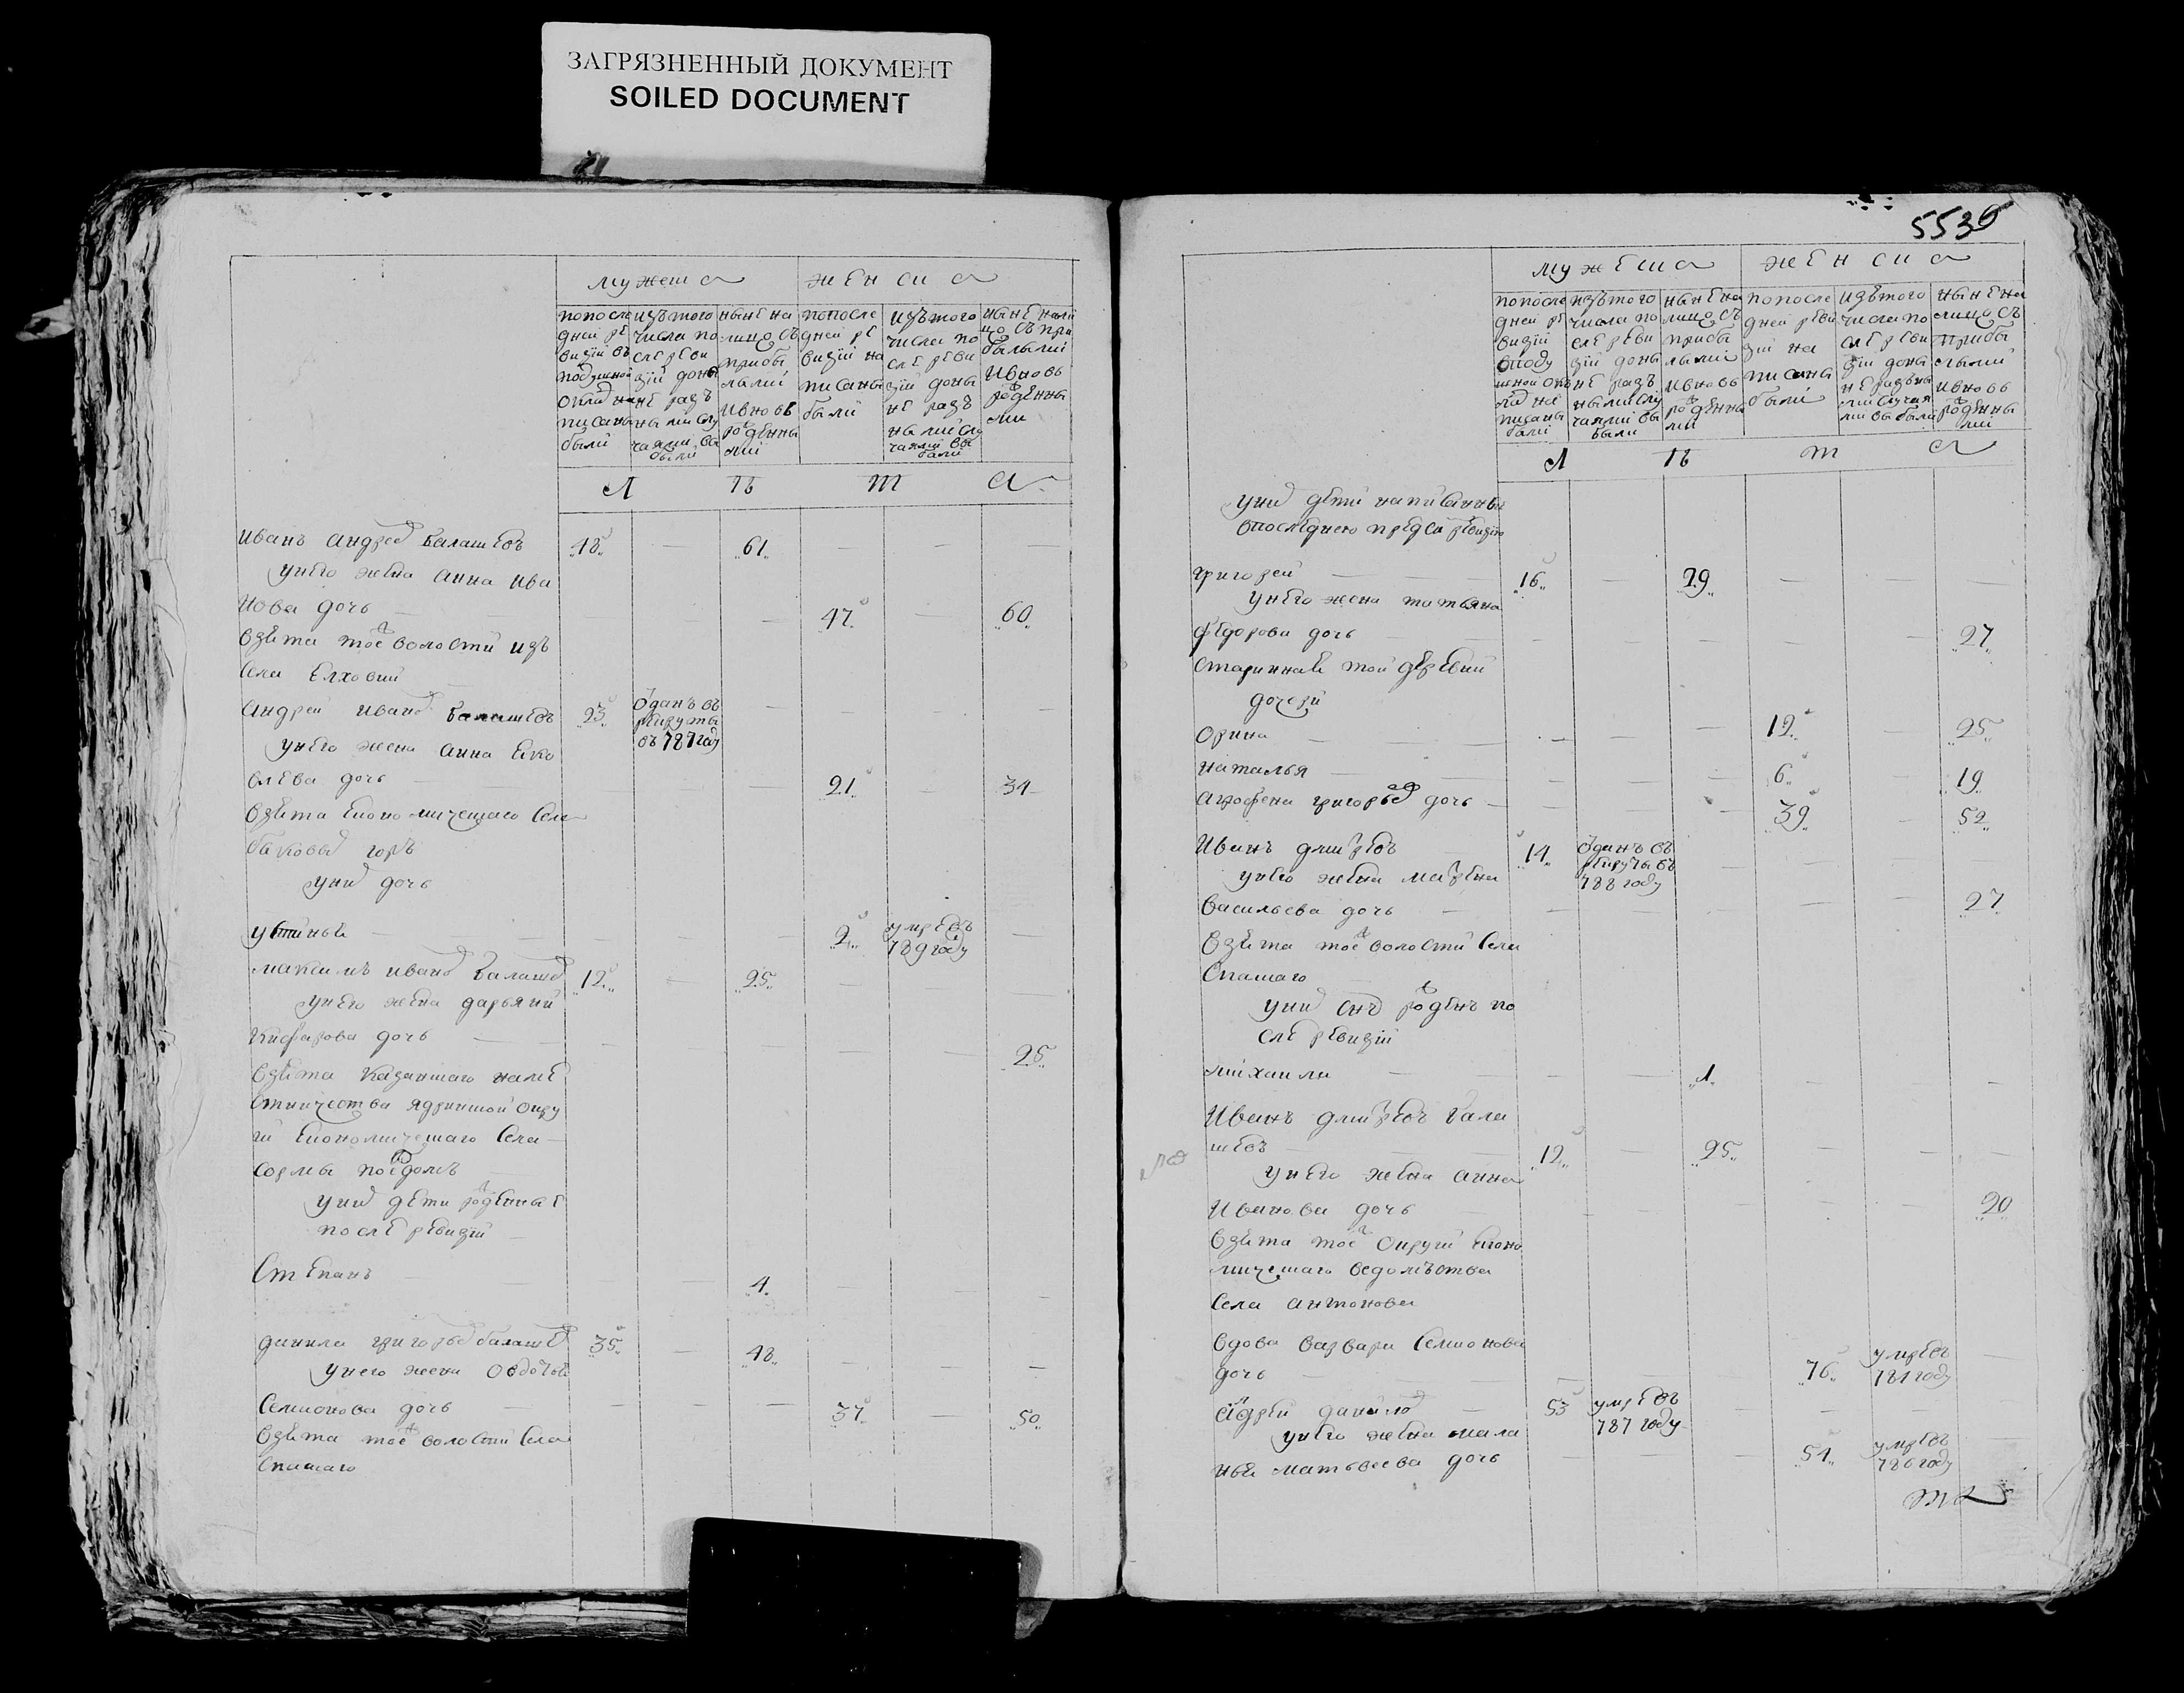 ЗАГРЯЗНЕННЫЙ ДОКУМЕНТ
SOILED DOCUMENT
мужеска женска
попосле дней ре визiй въ подушной оклад на писаны были
изъ того числа по сле реви зiй доны не разъ ными слу чаями вы были
ныне на лицо съ прибы лыми ивновь рожденны ми
попосле дней ре визiй на писаны были
изъ того числа по сле реви зiй доны не разъ ными слу чаями вы были
ныне нали цо съ при былыми ивновь рожденны ми
Л Ѣ Т А
Иванъ андрее балашевъ 48 — 61 — — —
унего жена анна ива
нова дочь — 47 — 60
взята тое волости изъ
села Елховки
андреи ивано балашевъ 23 отданъ въ рекруты въ 787 году — — — —
унего жена анна яко
влева дочь 21 — 34
взята економическаго села
баковы горъ
уних дочь
устинья — — — 2 умре въ 789 году —
максимъ ивано балаше 12 — 25 — — —
унего жена дарья ни
кифорова дочь — — — — — 25
взята казанскаго наме
стничества ядринской окру
ги економическаго села
сормы
уних дети рожденные
после ревизiи
Степанъ 4 — — —
данила григорье балаше 35 — 48 — — —
унего жена овдотья
семионова дочь — — — 37 — 50
взята тое волости села
спаскаго
5536
мужеска женска
попосле дней ре визiй вподу шной окла на писаны были
изъ того числа по сле реви зiй доны не разъ ными слу чаями вы были
ныне на лицо съ прибы лыми ивновь рожденны ми
попосле дней реви зiй на писаны были
изъ того числа по сле реви зiй доны не разъны ми случая ми выбыли
ныне на лицо съ прибы лыми ивновь рожденны ми
Л Ѣ Т А
уних дети написанныя
впоследнею пред сей ревизию
григореи — 16 — 29 — — —
унего жена татьяна
федорова дочь — — — — — 27
старинная той деревни
дочери
Орина — — — — 12 — 25
наталья — — — — 6 — 19
агрофена григорье дочь — — — 39 — 52
Иванъ дмитревъ 14 отданъ въ рекруты въ 788 году — — —
унего жена мавра
васильева дочь — — — — — 27
взята тое волости села
спаскаго
уних сынъ рожденъ по
сле ревизiи
михаила — — — 1 — —
Иванъ дмитревъ бала
шевъ — 12 — 25 — — —
унего жена анна
Иванова дочь — — — — — 20
взята тое округи еконо
мическаго ведомъства
села антонова
вдова варвара семионова
дочь — — — 76 умре въ 784 году —
андреи данило — 53 умре въ 787 году — — —
унего жена мала
нья матвеева дочь — — — 54 умре въ 786 году —